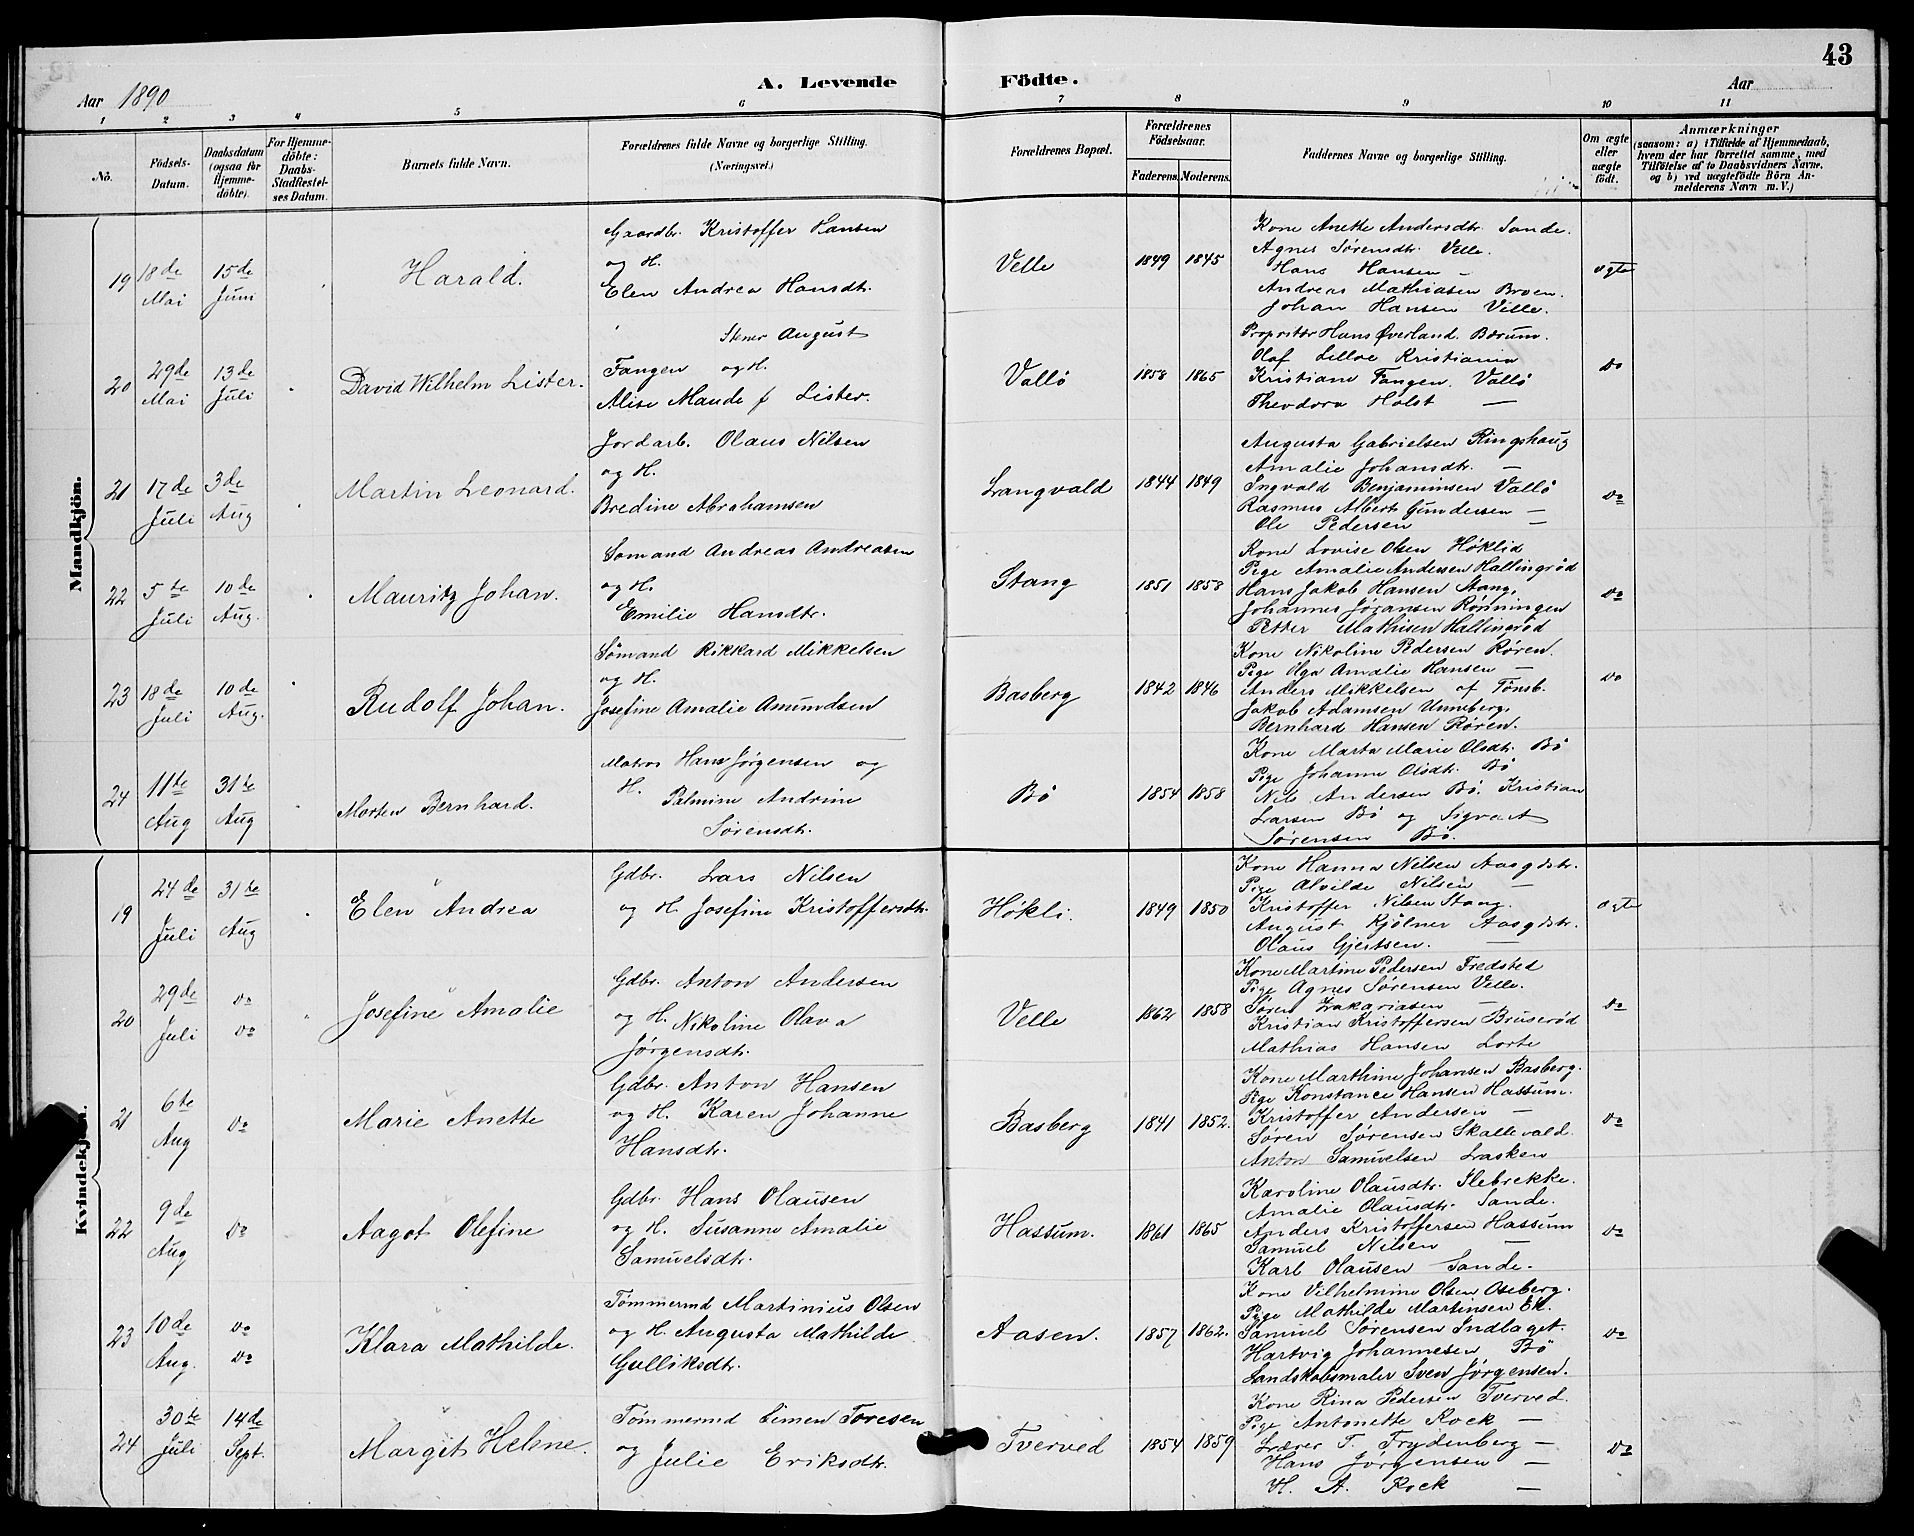 43
Aar 1890
A. Levende Födte.
Aar
1 2 3 4 5 6 7 8 9 10 11
No.
Födsels-Datum.
Daabsdatum (ogsaa for Hjemme-döbte).
For Hjemme-döbte: Daabs-Stadfæstel-ses Datum.
Barnets fulde Navn.
Forældrenes fulde Navne og borgerlige Stilling. (Næringsvei.)
Forældrenes Bopæl.
Forældrenes Födselsaar.
Faderens. Moderens.
Faddernes Navne og borgerlige Stilling.
Om ægte eller uægte födt.
Anmærkninger
(saasom: a) i Tilfælde af Hjemmedaab,
hvem der har forrettet samme, med
Tilföielse af to Daabsvidners Navne.
og b) ved uægtefödte Börn An-
melderens Navn m. V.)
Mandkjön.
19 18de Mai 15de Juni
Harald.
Gaardbr. Kristoffer Hansen
og H.
Elen Andrea Hansdtr.
Velle 1849 1845
Kone Anette Andersdtr. Sande.
Agnes Sørensdtr. Velle.
Hans Hansen —
Andreas Mathiasen Broen.
Johan Hansen Velle.
ægte
20 29de Mai 13de Juli
David Wilhelm Lister.
Stener August
Fangen og H.
Alise Maude f Lister.
Vallö 1858 1865
Proprietær Hans Øverland. Bærum.
Olaf Lilloe Kristiania
Kristiane Fangen. Vallö
Theodora Holst —
do
21 17de Juli 3de Aug
Martin Leonard.
Jordarb. Olaus Nilsen
og H.
Bredine Abrahamsen
Langvald 1844 1849
Augusta Gabrielsen Ringshaug
Amalie Johansdtr. —
Ingvald Benjaminsen Vallö
Rasmus Albert Gundersen —
Ole Pedersen —
do
22 5te Juli 10de Aug.
Mauritz Johan.
Sømand Andreas Andreasen
og H.
Emilie Hansdtr.
Stang 1851 1858
Kone Lovise Olsen Høklid
Pige Amalie Andersen Hallingrød
Hans Jakob Hansen Stang,
Johannes Jøransen Rønningen
Petter Mathisen Hallingrød
do
23 18de Juli 10de Aug.
Rudolf Johan.
Sömand Rikkard Mikkelsen
og H.
Josefine Amalie Amundsen
Basberg 1842 1846
Kone Nikoline Pedersen Røren.
Pige Olga Amalie Hansen —
Anders Mikkelsen af Tønsb.
Jakob Adamsen Unneberg,
Bernhard Hansen Røren.
do
24 11te Aug 31te Aug
Morten Bernhard.
Matros Hans Jørgensen og
H. Palmine Andrine
Sørensdtr.
Bö 1854 1858
Kone Marta Marie Olsdtr. Bö
Pige Johanne Olsdtr. Bö
Nils Andersen Bö. Kristian
Larsen Bö og Sigvart
Sørensen Bö.
Kvindekjön.
19 24de Juli 31te Aug
Elen Andrea
Gdbr. Lars Nilsen
og H. Josefine Kristoffersdtr.
Høkli. 1849 1850
Kone Hanna Nilsen Aasgdstr.
Pige Alvilde Nilsen —
Kristoffer Nilsen Stang.
August Kjölner Aasgdstr.
Olaus Gjertsen. —
ægte
20 29de Juli do do
Josefine Amalie
Gdbr. Anton Andersen
og H. Nikoline Olava
Jørgensdtr.
Velle 1862 1858
Kone Martine Pedersen Fredsted
Pige Agnes Sørensen Velle.
Søren Zakariasen —
Kristian Kristoffersen Bruserød
Mathias Hansen Lorte
do
21 6te Aug do
Marie Anette
Gdbr. Anton Hansen
og H. Karen Johanne
Hansdtr.
Basberg 1841 1852.
Kone Marthine Johansen Basberg.
Pige Konstance Hansen Hassum.
Kristoffer Andersen —
Søren Sørensen Skallevald.
Anton Samuelsen Lasken
do
22 9de Aug do
Aagot Olefine
Gdbr. Hans Olausen
og H. Susanne Amalie
Samuelsdtr.
Hassum. 1861 1865
Karoline Olausdtr. Ilebrekke.
Amalie Olausdtr. Sande.
Anders Kristoffersen Hassum
Samuel Nilsen —
Karl Olausen Sande.
do
23 10de Aug. do do
Klara Mathilde.
Tømmermd Martinius Olsen
og H. Augusta Mathilde
Gulliksdtr.
Aasen. 1857 1862.
Kone Vilhelmine Olsen Oseberg.
Pige Mathilde Martinsen Ek.
Samuel Sørensen Indlaget.
Hartvig Johannesen Bö
Landskabsmaler Sven Jørgensen.
do
24 30te Juli 14de Sept.
Margit Helene.
Tømmermd Simen Toresen
og Julie Eriksdtr.
Tverved 1854 1859
Kone Rina Pedersen Tverved.
Pige Antonette Rock —
Lærer T. Frydenberg —
Hans Jørgensen —
H. A. Rock —
do